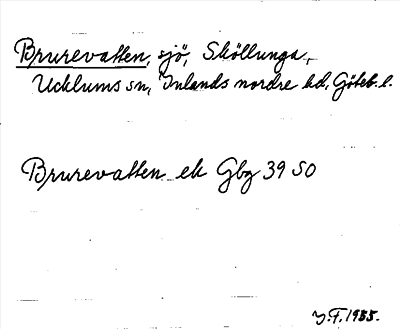 Brurevatten, sjö, Sköllunga,
Ucklums sn, Inlands nordre hd, Göteb. l.
Brurevatten ek Gbg 39 SO
Y.F. 1955.